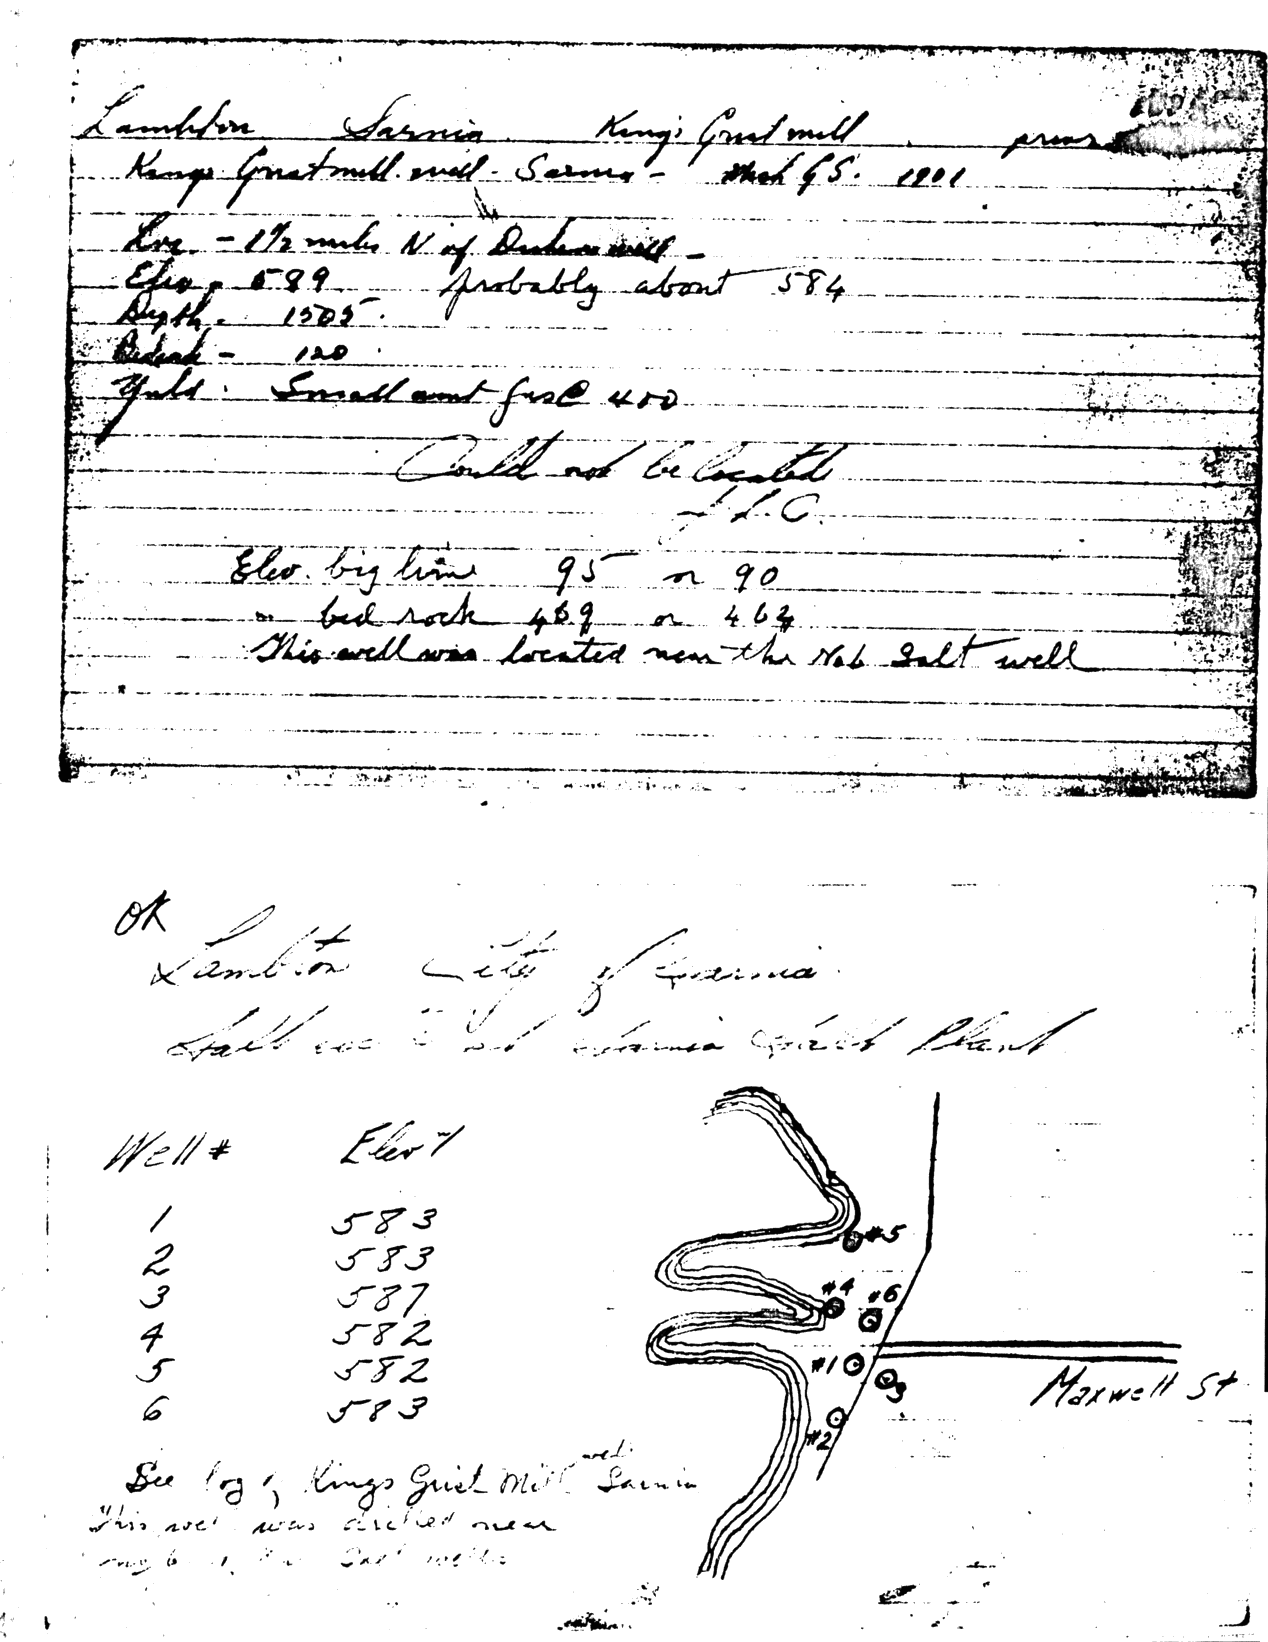 Lambton Sarnia Kings Grist mill prior
Kings Grist mill well - Sarnia - Mich G.S. 1901
Loc. - 1 1/2 miles N of well -
Elev. - 589 probably about 584
Depth - 1505
Bedrock - 120
Yield: Small amt gas @ 400
Could not be located
Elev. big lime 95 or 90
" bed rock 469 or 464
This well was located near the No 6 Salt well
OK
Lambton City of Sarnia
Sarnia Salt Plant
Well # Elev'n
1 583
2 583
3 587
4 582
5 582
6 583
#5
#4 #6
#1
3
#2
Maxwell St
See log of Kings Grist Mill well Sarnia
This well was drilled near
no 6 Salt wells